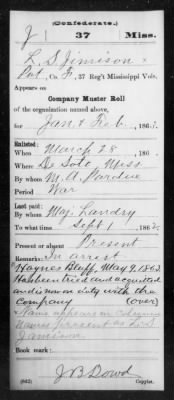 (Confederate.)
J 37 Miss.
L. S. Jimison
Pvt., Co. F, 37 Reg't Mississippi Vols.
Appears on
Company Muster Roll
of the organization named above,
for Jan & Feb, 1863.
Enlisted:
When March 28, 186
Where De Soto, Miss.
By whom M. A. Pardue
Period War
Last paid:
By whom Maj. Landry
To what time Sept 1, 1862.
Present or absent Present
Remarks: In arrest
Haynes Bluff, May 9, 1863
Has been tried and acquitted
and is now on duty with the
company (over)
Name appears in column
names present as L. S.
Jamison
Book mark:
J. B. Dowd
(642) Copyist.